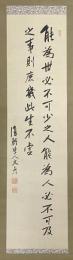 能為世必不可少之人能為人必不可及
之事則庶幾此生不虚